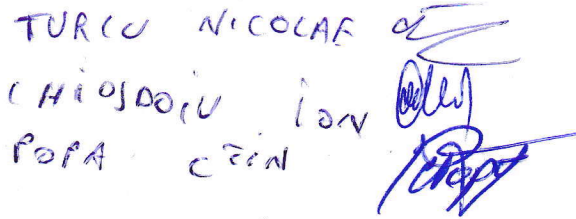 TURCU NICOLAE
CHIOSDOIU ION
POPA CTIN